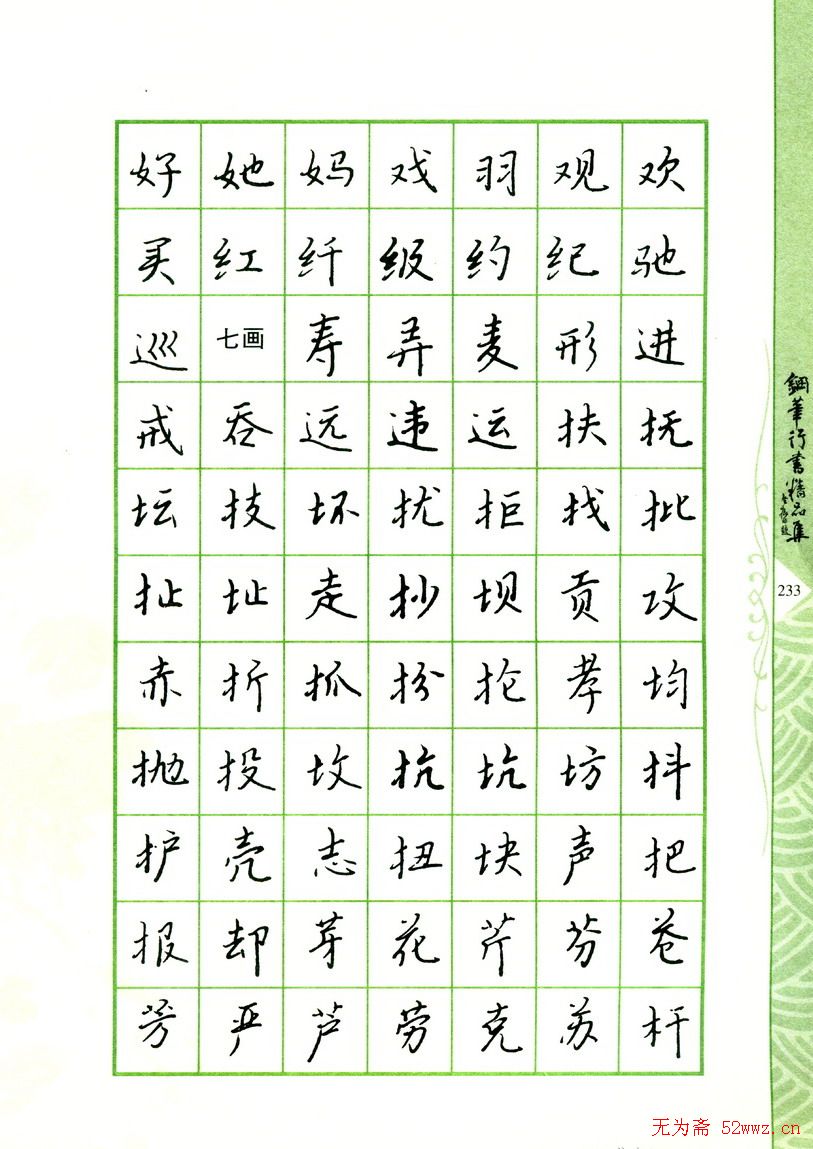 好 她 妈 戏 羽 观 欢
买 红 纤 级 约 纪 驰
巡 七画 寿 弄 麦 形 进
戒 吞 远 违 运 扶 抚
坛 技 坏 扰 拒 找 批
扯 址 走 抄 坝 贡 攻
赤 折 抓 扮 抡 孝 均
抛 投 坟 抗 坑 坊 抖
护 壳 志 扭 块 声 把
报 却 芽 花 芹 芬 苍
芳 严 芦 劳 克 苏 杆
鋼筆行書精品集
233
无为斋 52wwz.cn